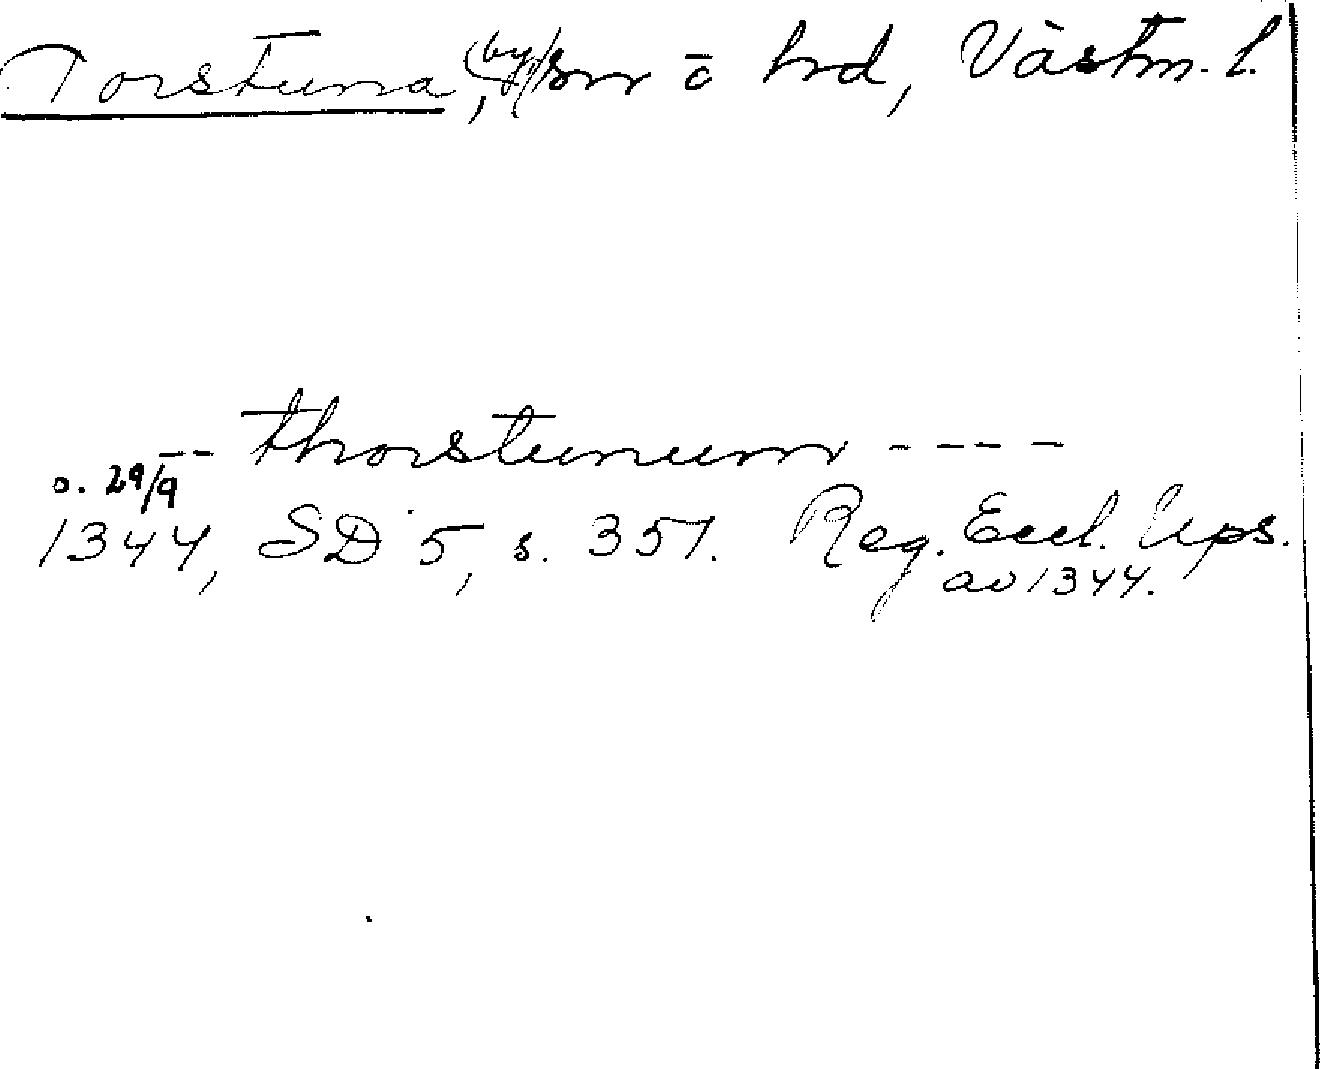 Torstuna, (by) sn o hd, Västm. l.
-- thorstunum ----
o. 29/9
1344, SD 5, s. 351. Reg. Eccl. Ups.
av 1344.